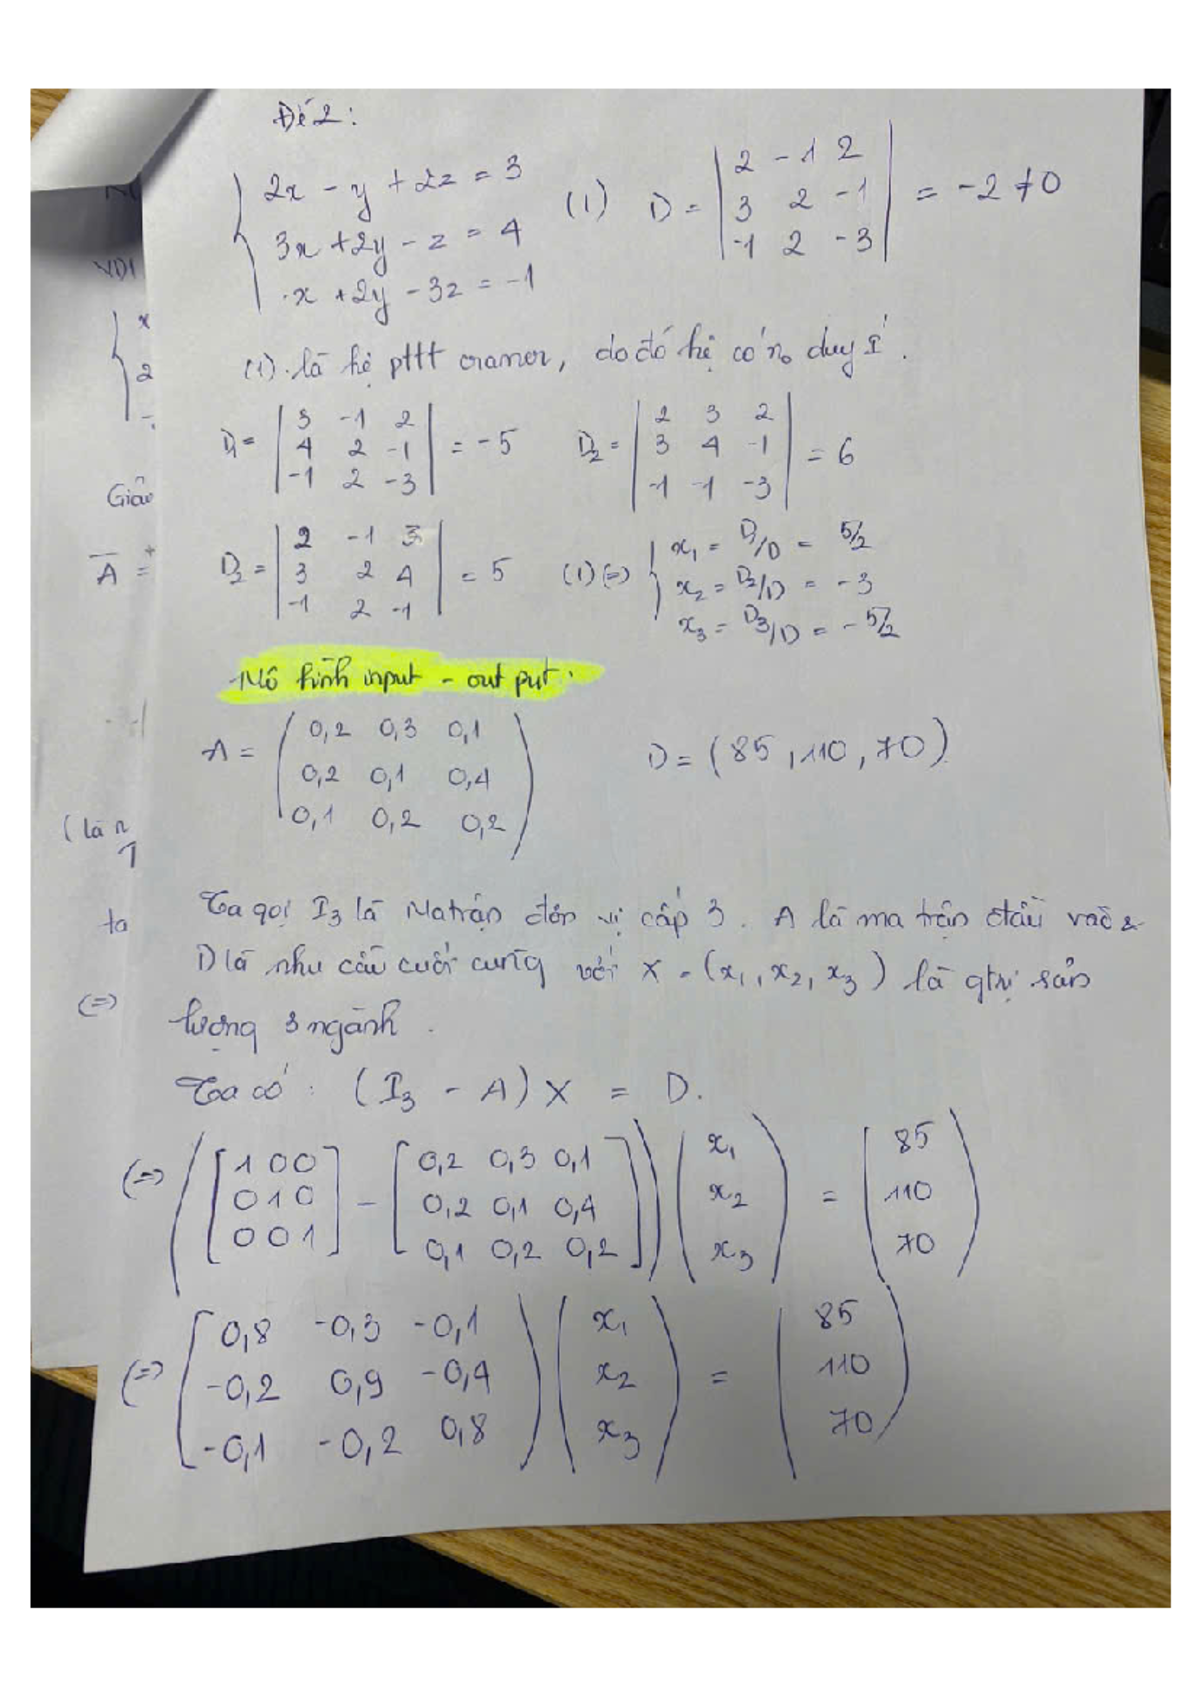 Đề 2:
2x - y + 2z = 3
3x + 2y - z = 4
-x + 2y - 3z = -1
(1) D = | 2 -1 2
3 2 -1
-1 2 -3 | = -2 ≠ 0
(1) là hệ pttt cramer, do đó hệ có no duy I.
D1 = | 3 -1 2
4 2 -1
-1 2 -3 | = -5
D2 = | 2 3 2
3 4 -1
-1 -1 -3 | = 6
D2 = | 2 -1 3
3 2 4
-1 2 -1 | = 5
(1) (=) { x1 = D1/D = 5/2
x2 = D2/D = -3
x3 = D3/D = -5/2
Mô hình input - out put:
A = ( 0,2 0,3 0,1
0,2 0,1 0,4
0,1 0,2 0,2 )
D = (85, 110, 70)
Ta gọi I3 là Ma trận đơn vị cấp 3. A là ma trận đầu vào &
D là nhu cầu cuối cùng với X = (x1, x2, x3) là gtrị sản
lượng 3 ngành.
Ta có: (I3 - A) X = D.
(=) ( [ 1 0 0
0 1 0
0 0 1 ] - [ 0,2 0,3 0,1
0,2 0,1 0,4
0,1 0,2 0,2 ] ) ( x1
x2
x3 ) = ( 85
110
70 )
(=) ( 0,8 -0,3 -0,1
-0,2 0,9 -0,4
-0,1 -0,2 0,8 ) ( x1
x2
x3 ) = ( 85
110
70 )
VD1
x
2
Giải
A =
(là n
1
ta
(=)